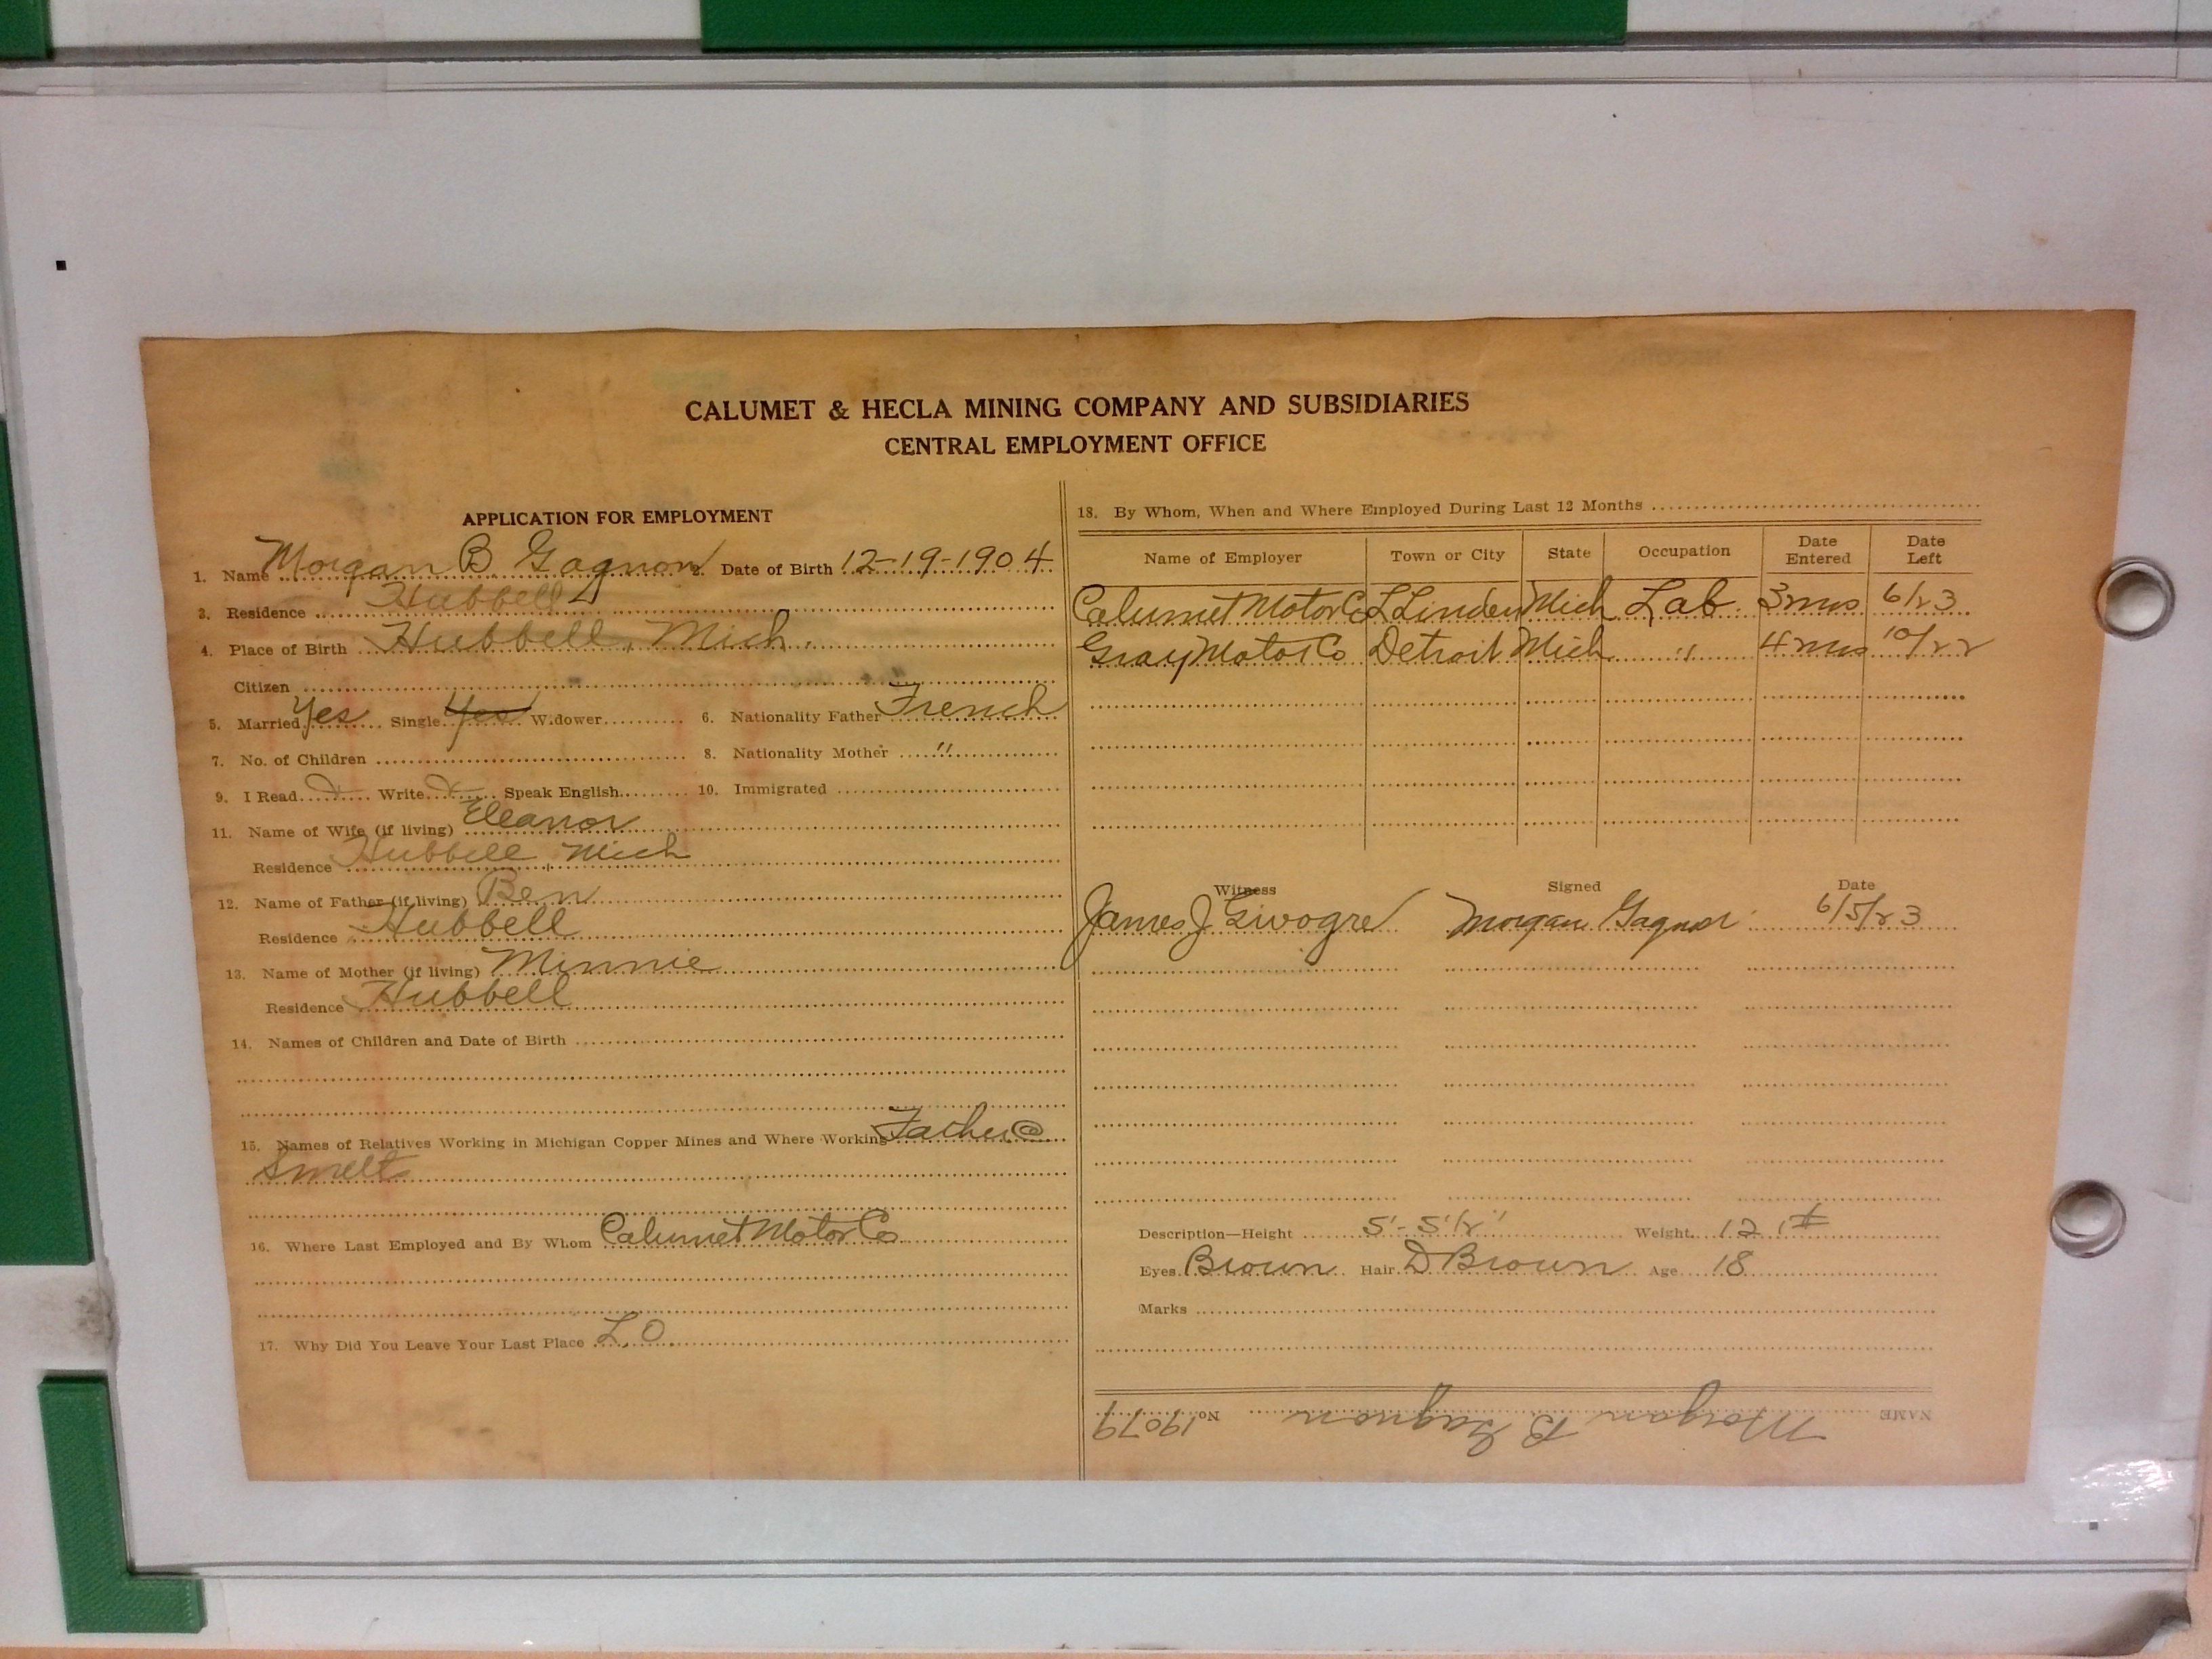 CALUMET & HECLA MINING COMPANY AND SUBSIDIARIES
CENTRAL EMPLOYMENT OFFICE
APPLICATION FOR EMPLOYMENT
1. Name Morgan B. Gagnon 2. Date of Birth 12-19-1904
3. Residence Hubbell
4. Place of Birth Hubbell, Mich.
Citizen
5. Married Yes Single Yes Widower 6. Nationality Father French
7. No. of Children 8. Nationality Mother "
9. I Read X Write X Speak English 10. Immigrated
11. Name of Wife (if living) Eleanor
Residence Hubbell, Mich
12. Name of Father (if living) Ben
Residence Hubbell
13. Name of Mother (if living) Minnie
Residence Hubbell
14. Names of Children and Date of Birth
15. Names of Relatives Working in Michigan Copper Mines and Where Working Father @
Smelt
16. Where Last Employed and By Whom Calumet Motor Co
17. Why Did You Leave Your Last Place L.O
18. By Whom, When and Where Employed During Last 12 Months
Name of Employer Town or City State Occupation Date Entered Date Left
Calumet Motor Co L Linden Mich Lab. 3 mos 6/23
Gray Motor Co Detroit Mich " 4 mos 10/22
Witness Signed Date
James J. Morgan Gagnon 6/5/23
Description—Height 5'-5 1/2" Weight 121#
Eyes Brown Hair D Brown Age 18
Marks
NAME Morgan B Gagnon No 19079